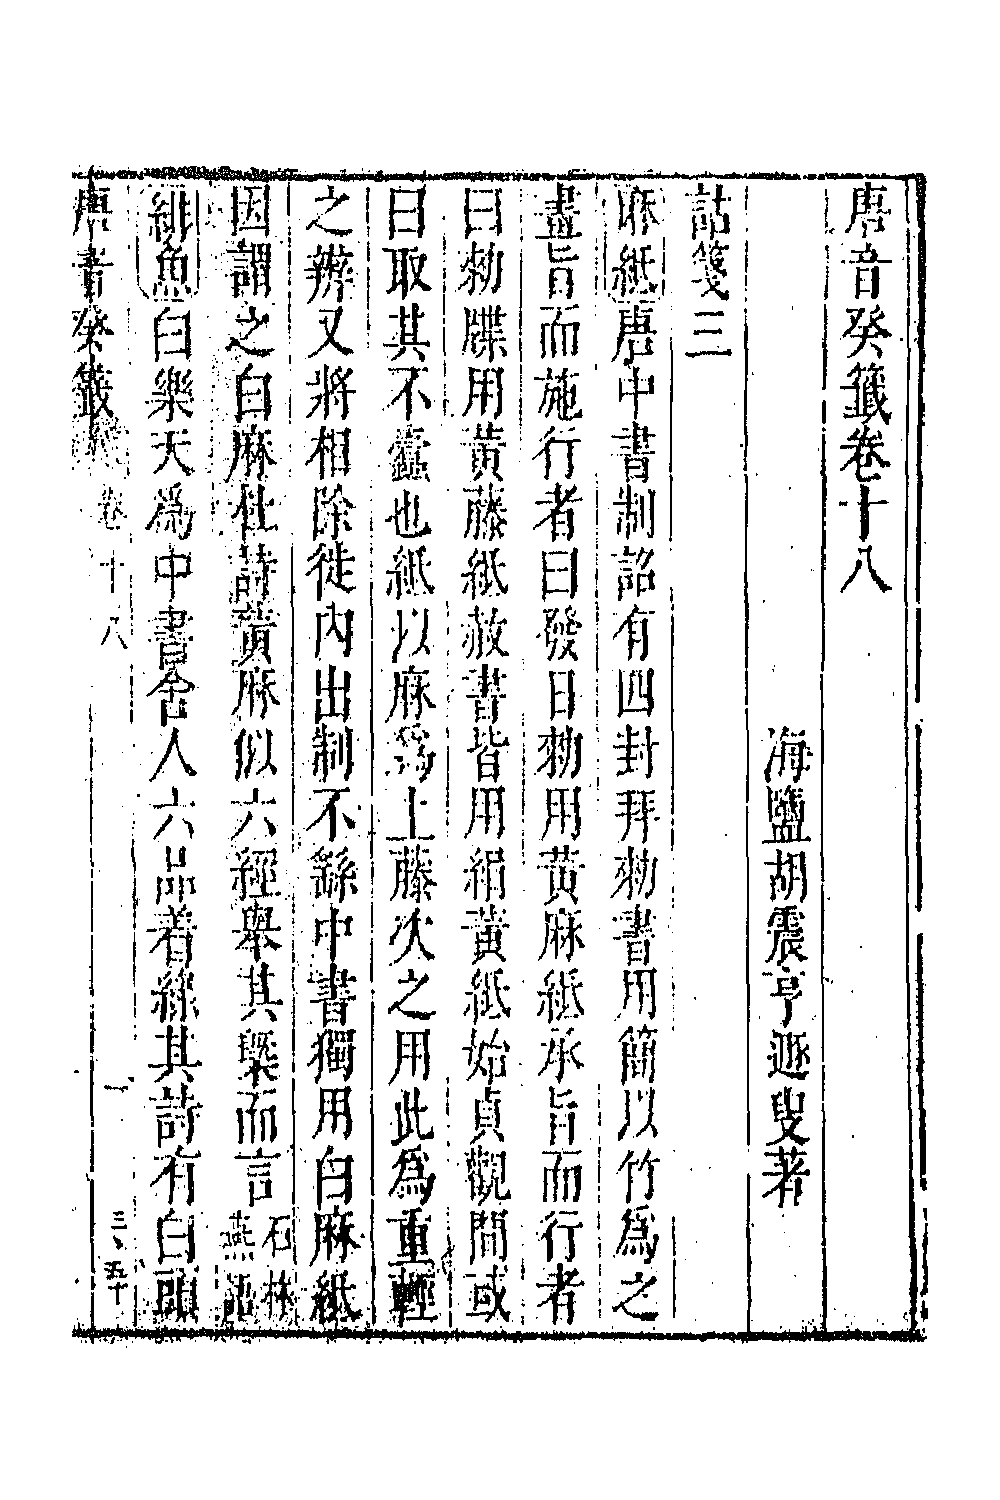 唐音癸籤卷十八
海鹽胡震亨遯叟著
詁箋三
麻紙唐中書制詔有四封拜勑書用簡以竹為之
畫旨而施行者曰發日勑用黃麻紙承旨而行者
曰勑牒用黃藤紙赦書皆用絹黃紙始貞觀間或
曰取其不蠧也紙以麻為上藤次之用此為重輕
之辨又將相除徙內出制不繇中書獨用白麻紙
因謂之白麻杜詩黃麻似六經舉其槩而言石林燕語
緋魚白樂天為中書舍人六品着綠其詩有白頭
唐音癸籤 卷十八 一 三、五十